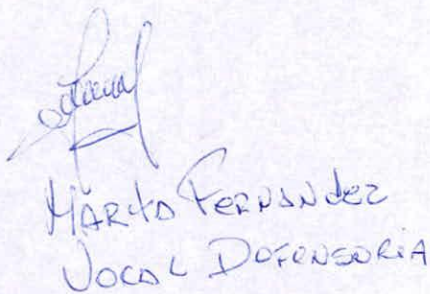 Marta Fernandez
Vocal Defensoria